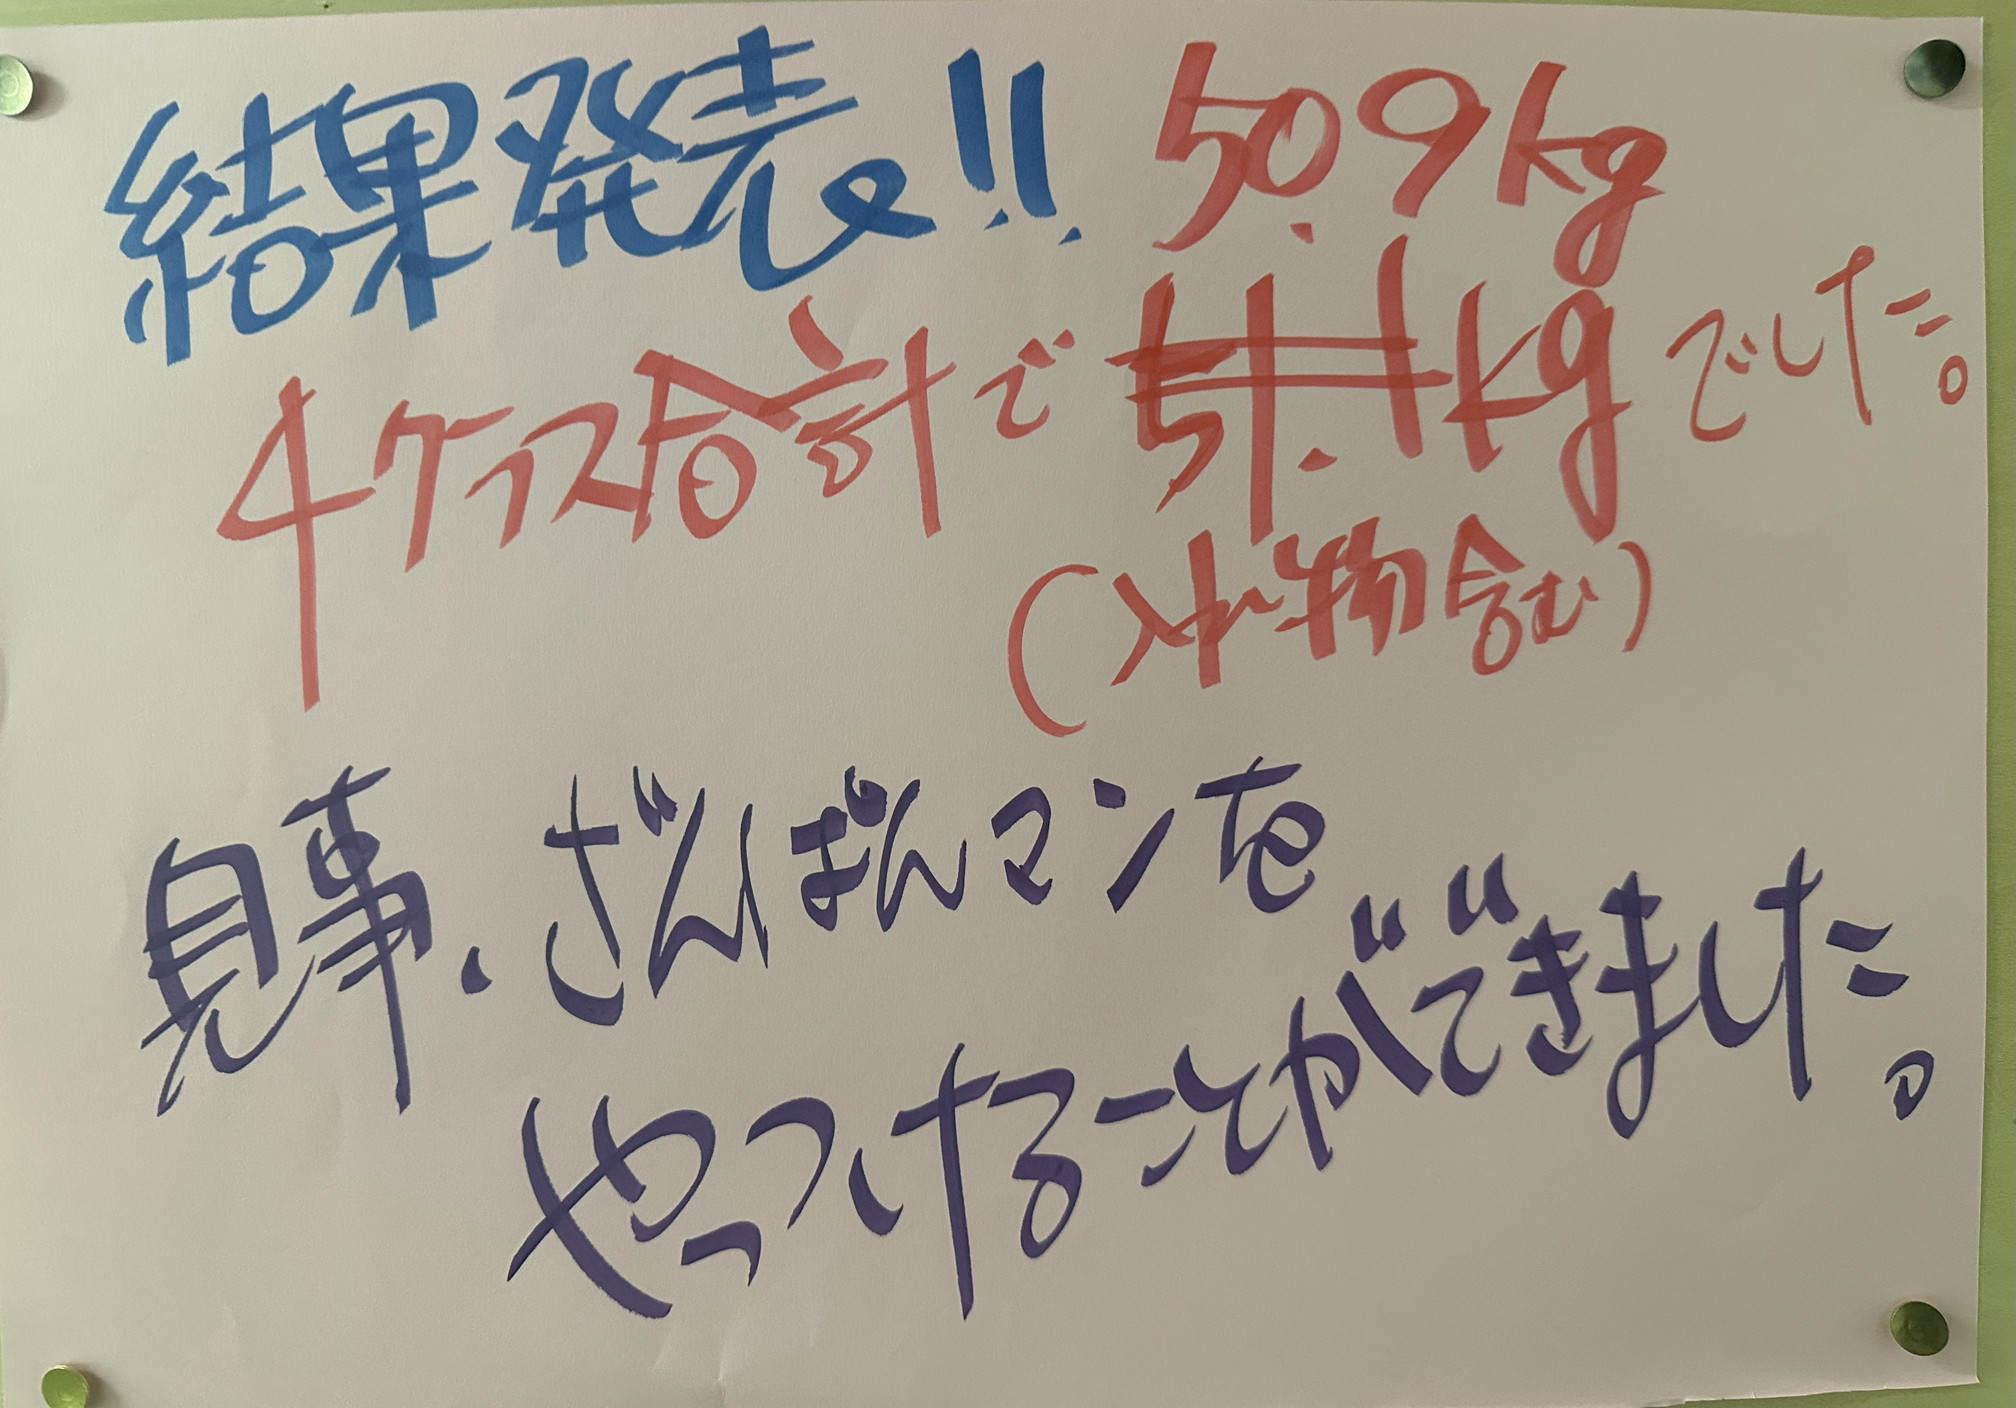 結果発表!! 50.9kg
4ケース合計で 51.1kg でした。
(入れ物含む)
見事、ざんぱんマンを
やっつけることができました。